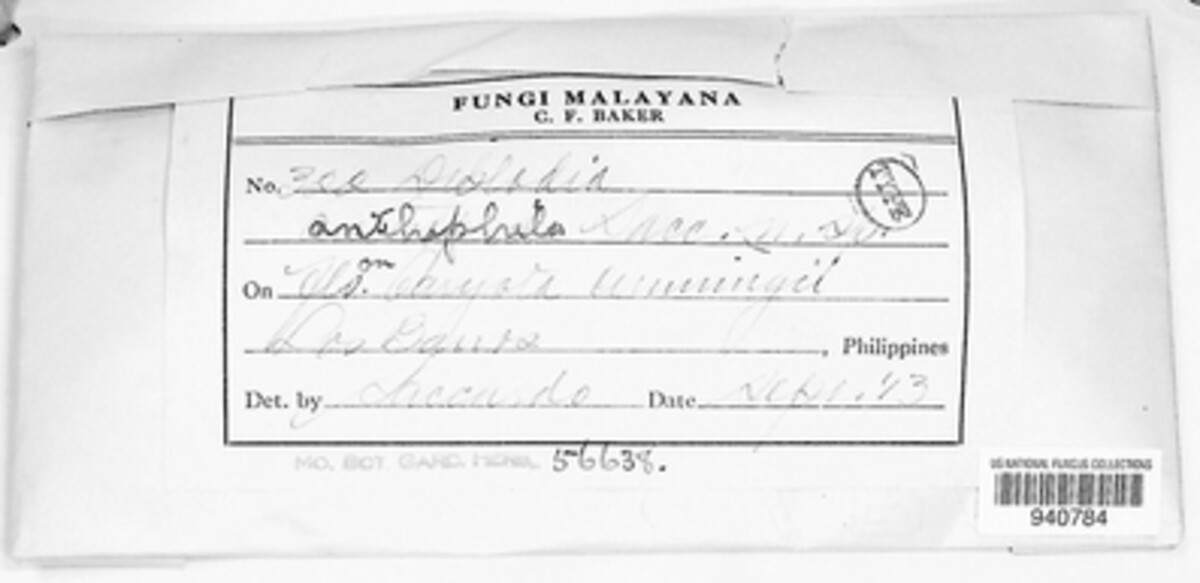 FUNGI MALAYANA
C. F. BAKER
No. 300 Diplodia
anthophila Sacc. n. sp.
On Fls. on Caryota cumingii
Los Banos, Philippines
Det. by Saccardo Date Sept. '13
MO. BOT. GARD. HERB. 56638.
US NATIONAL FUNGUS COLLECTIONS
940784